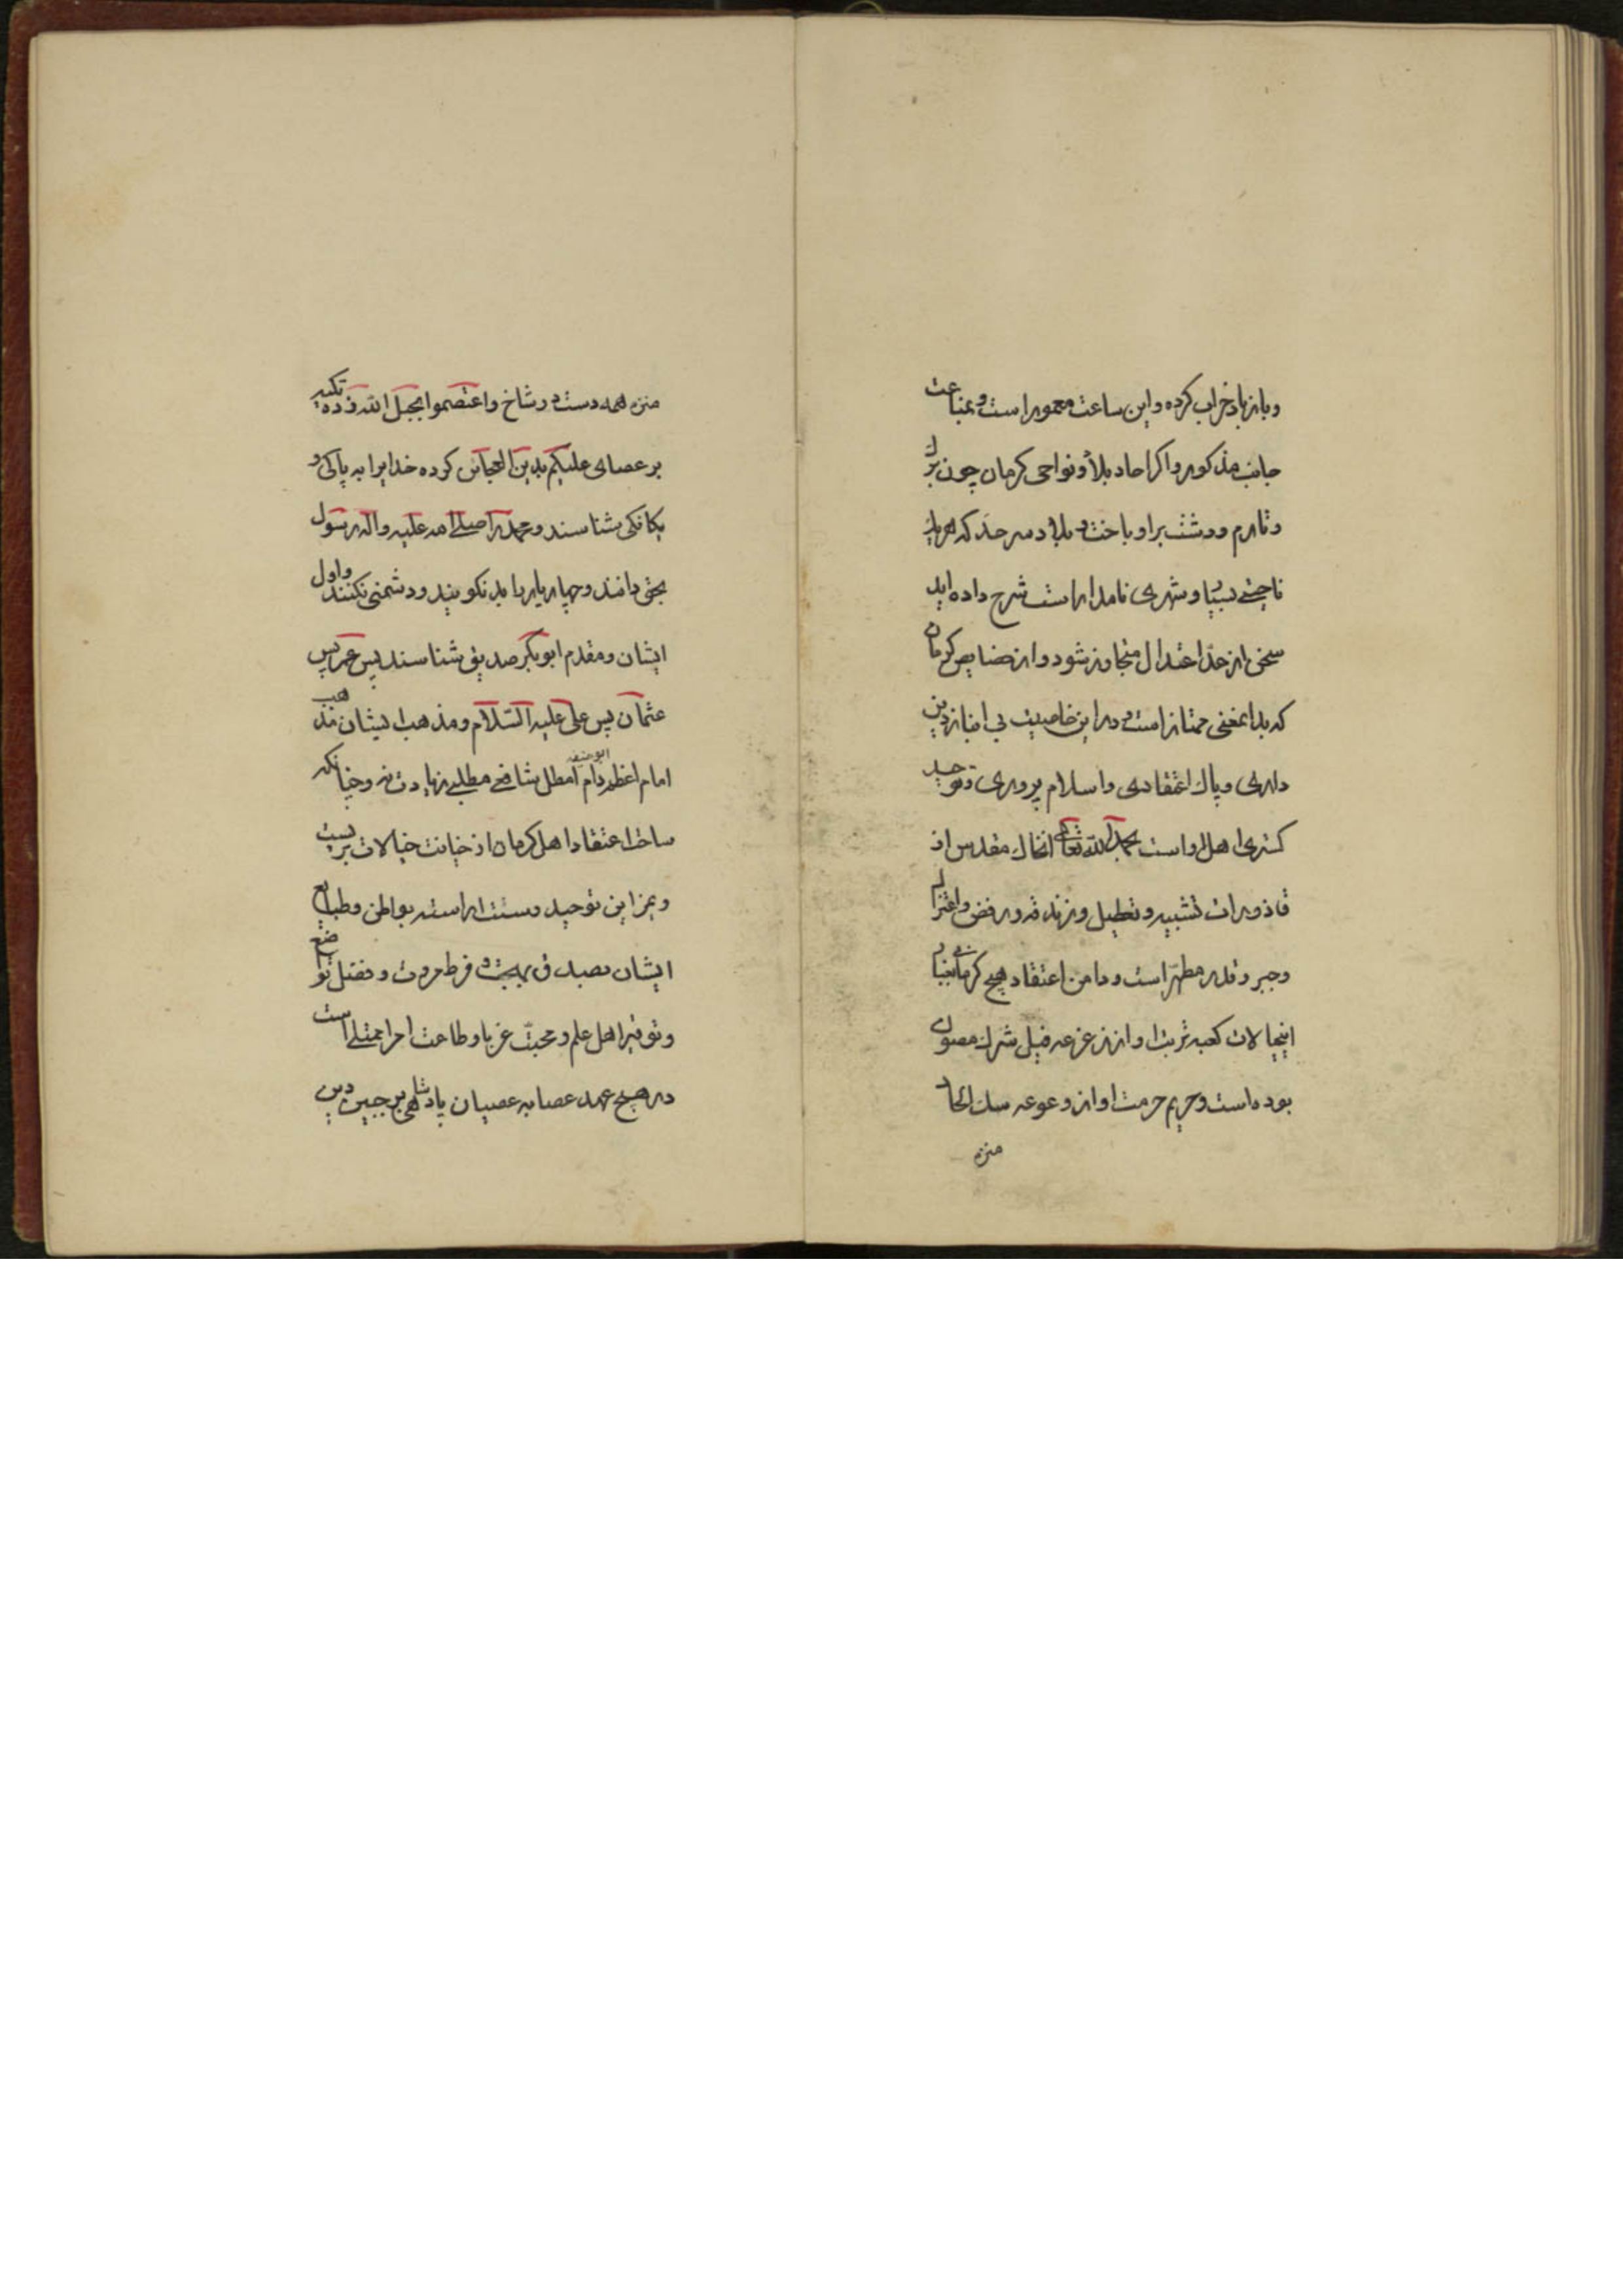 وباز باد خراب کرده و این ساعت معمور است و بمناعت
جانب مذکور و اکر احاد بلاد و نواحی کرمان چون
و نارم و و بر او باخت و بلاد سرحد که هریک
ناحیتی و شهری نامدار است شرح داده اید
سخن از حد اعتدال متجاوز شود و از خصایص کرمان
که بدا بمعنی ممتاز است و در این خاصیت بی انباز دین
داری و پاک اعتقادی و اسلام پروری و توحید
کستری اهل او است بحمد الله تعالی انخاک مقدس از
قاذورات تشبیه و تعطیل و زندقه و رفض و اعتزال
و جبر و قدر مطهر است و دامن اعتقاد هیچ کرمانی
کعبه تربت او از زعزعه فیل شرک مصون
بوده است و حریم حرمت او از وعوعه سک الحاد
منزه
منزه همه دست در شاخ واعتصموا بحبل الله زده تکیه
بر عصای علیکم بدین العجایز کرده خدایرا به پاکی و
یکانکی شناسند و محمد را صلی الله علیه واله رسول
بحق دانند و چهار یار را بد نکویند و دشمنی نکنند و اول
ایشان و مقدم ابوبکر صدیق شناسند پس عمر پس
عثمان پس علی علیه السلام و مذهب ایشان مذهب
امام اعظم ابو حنیفه امام مطلبی شافعی مطلبی زیادت نه و چنانکه
ساخت اعتقاد اهل کرمان از خیانت خیالات بریست
و بمزاین توحید و سنت اراسته بواطن و طبایع
ایشان بصدق و فرط مروت و فضل تواضع
و توقیر اهل علم و محبت غربا و طاعت امرا ممتلی است
در هیچ عهد عصابه عصیان پادشاهی بر جبین دین